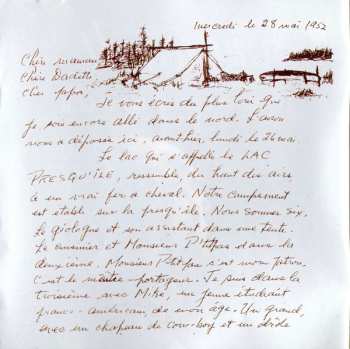 Mercredi le 28 mai 1952
Chère maman,
Chère
Cher papa,
Je vous écris du plus loin que
je sois encore allé dans le nord. L'avion
nous a déposés ici, avant-hier, lundi le 26 mai.
Le lac qui s'appelle le LAC
PRESQU'ÎLE, ressemble, du haut des airs
à un vrai fer à cheval. Notre campement
est établi sur la presqu'île. Nous sommes six.
Le géologue et son assistant dans une tente.
Le cuisinier et Monsieur Ptitpas dans la
deuxième. Monsieur Ptitpas c'est mon patron.
C'est le maître portageur. Je suis dans la
troisième, avec Mike, un jeune étudiant
franco-américain, de mon âge. Un grand,
avec un chapeau de cow-boy et un drôle